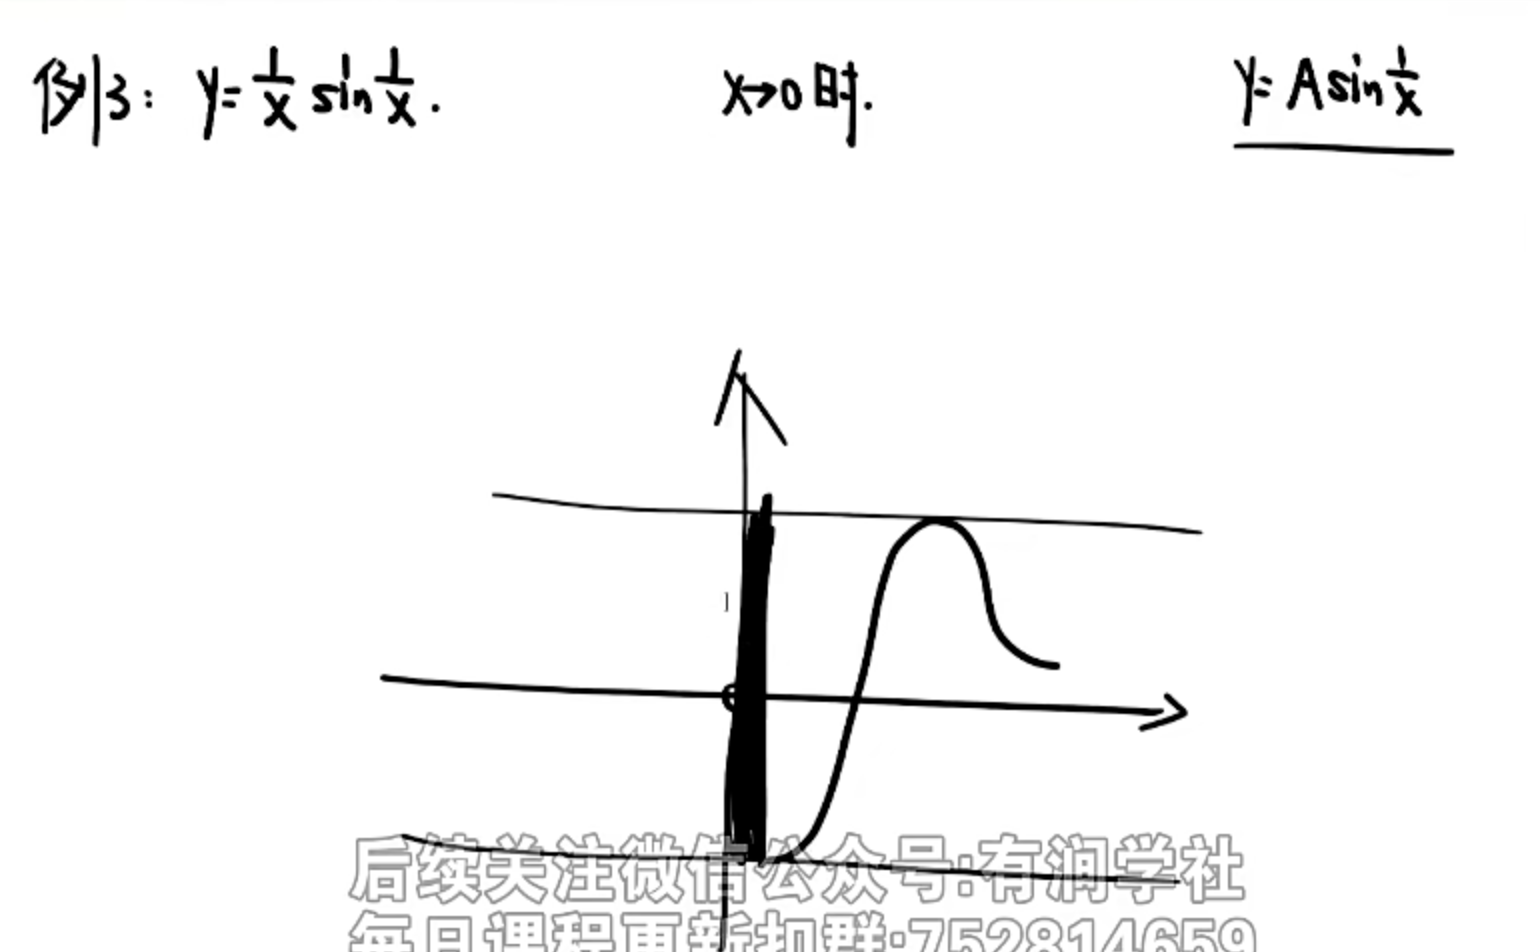 例3: y=1/x sin 1/x. x→0时. y=A sin 1/x
后续关注微信公众号:有润学社
每日课程更新扣群:752814659